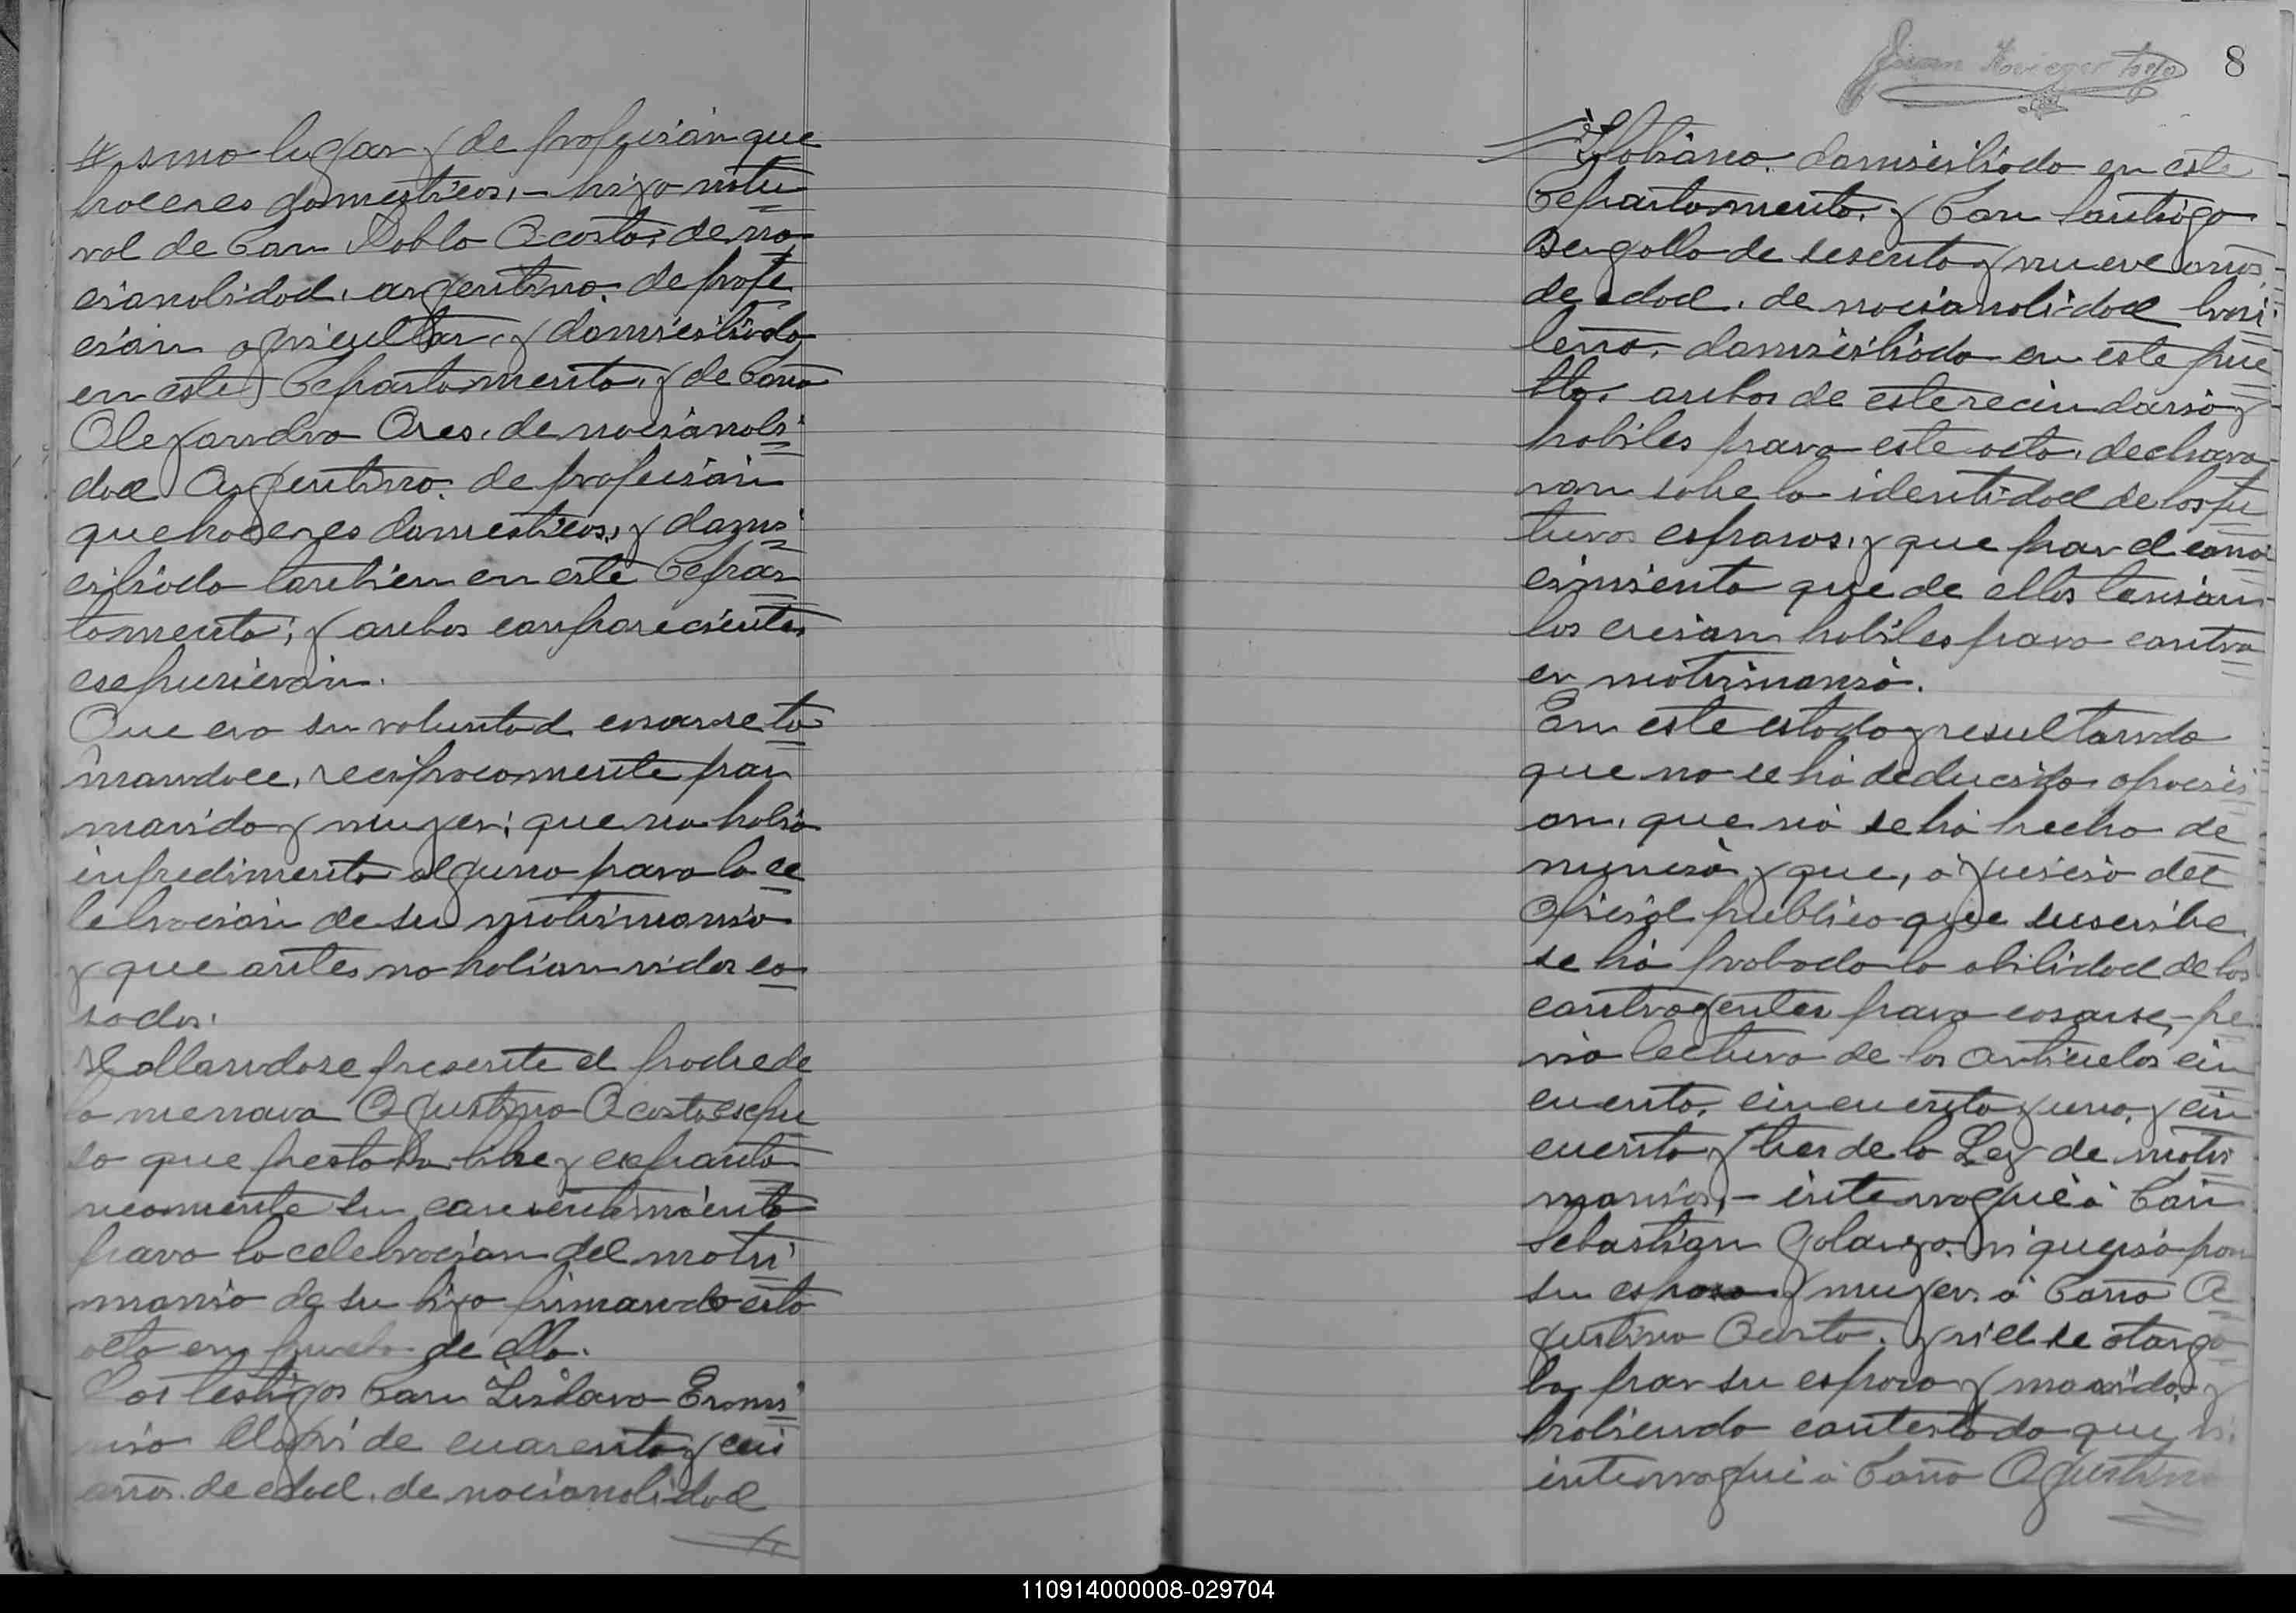 ismo lugar y de profesión que
haceres domesticos, - hija natu
ral de Don Pablo Acosta, de na
cionalidad, argentina, de profe
ción agricultor, y domiciliado
en este Departamento, y de Doña
Alejandra Ares, de nacionali
dad Argentina, de profesión
quehaceres domesticos, y domi
ciliado tanbien en este Depar
tamento; y anbos conparecientes
expusieron.
Que era su voluntad casarse to
mandoce, reciprocamente por
marido y mujer; que no habia
inpedimento alguno para la ce
lebracion de su matrimonio
y que antes no habian sidos ca
sados.
Hallandose presente el padre de
la menora Agustina Acosta expu
so que prestaba libre y expanta
neamente su consentimiento
para la celebracion del matri
monio de su hija firmando esta
acta en prueba de ello.
Los testigos Don
de cuarenta y
años de edad, de nacionalidad
8
Italiana, domiciliado en este
Departamento, y Don Santiago
de sesenta y nueve años
de edad, de nacionalidad brasi
lena, domiciliado en este pue
blo, anbos de este vecindario y
habiles para este acto, declrara
ron sobre la identidad de los fu
turos esposos, y que por el cono
cimiento que de ellos tenian
los creian habiles para contra
er matrimonio.
En este estado y resultando
que no se há deducido oposici
on, que nó se há hecho de
nuncia y que, á juicio del
Oficial publico que suscribe
se há probado la abilidad de los
contragentes para casarse, - pre
via lectura de los articulos cin
cuenta, cincuenta y uno, y cin
cuenta y tres de la Ley de matri
monios, - interrogué á Don
Sebastian Golarza, si queria por
su esposa y mujer á Doña A
gustina Acosta, y si el se otorga
ba por su esposo y marido, y
habiendo contestado que si,
interrogué á Doña Agustina
110914000008-029704